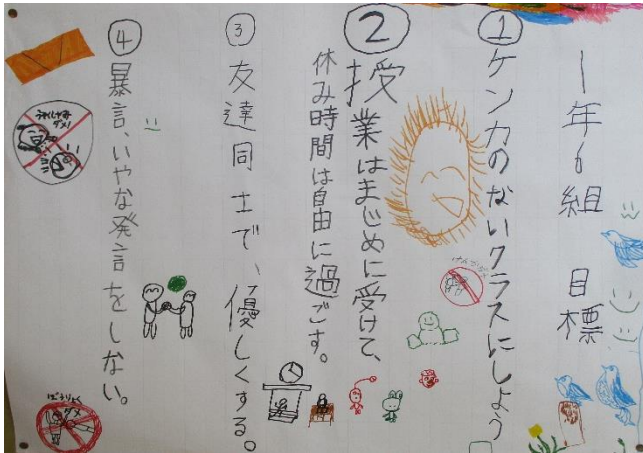 一年6組 目標
① ケンカのないクラスにしよう
② 授業はまじめに受けて、
休み時間は自由に過ごす。
③ 友達同士で、優しくする。
④ 暴言、いやな発言をしない。
ダメ
ぼうりょく
ダメ